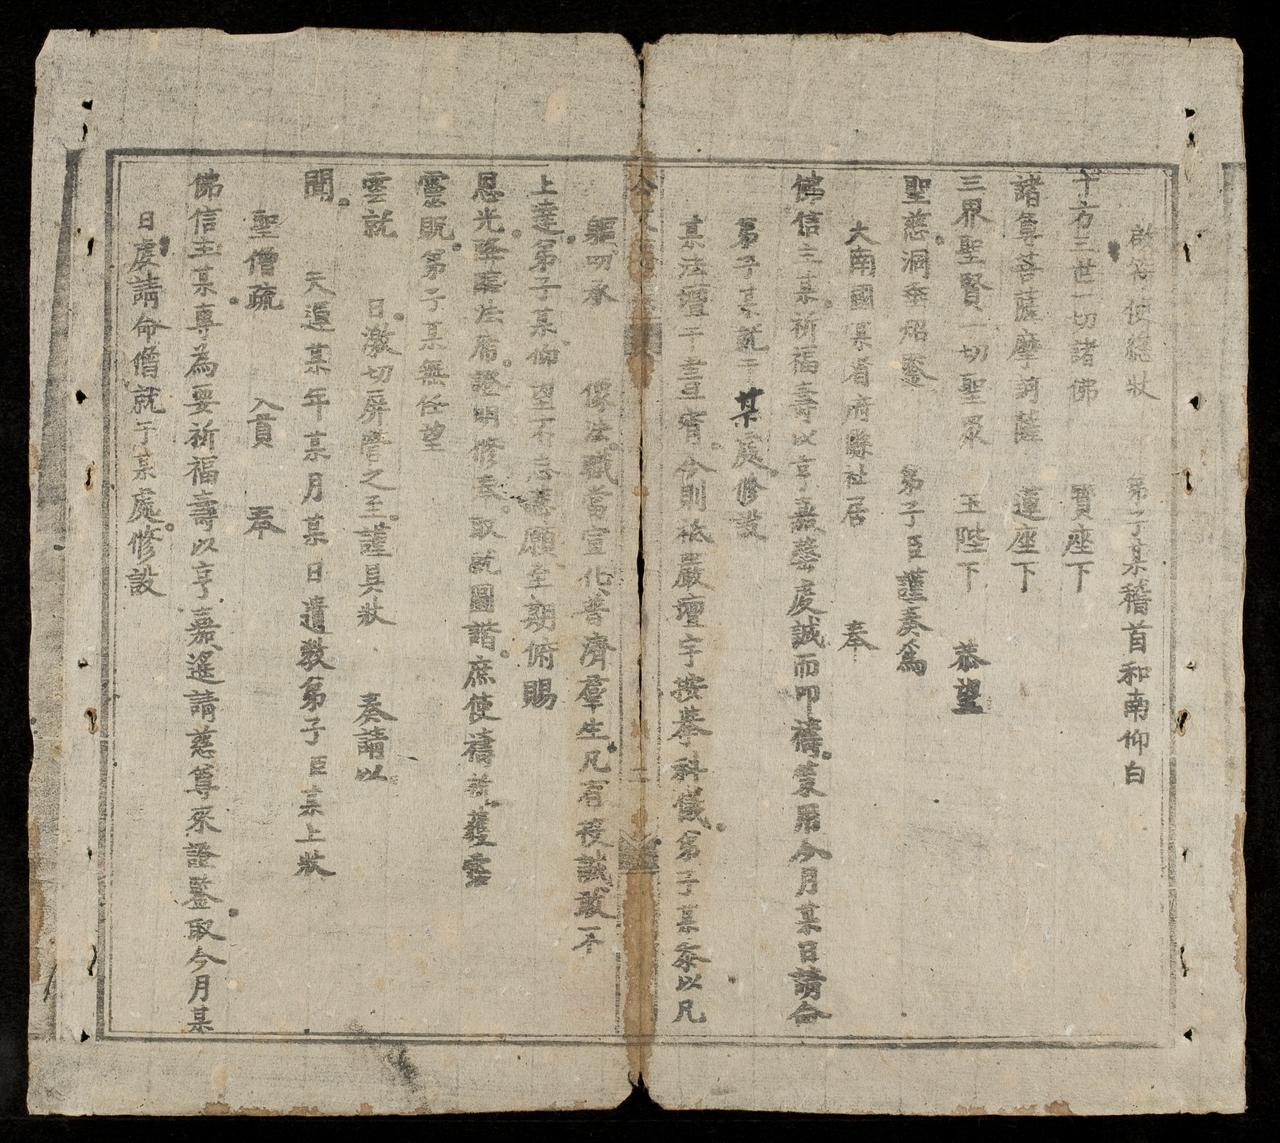 啟符使總狀 弟子某稽首和南仰白
十方三世一切諸佛 寶座下
諸尊菩薩摩訶薩 蓮座下
三界聖賢一切聖眾 玉陛下 恭望
聖慈洞垂炤鑒 弟子臣謹奏為
大南國某省府縣社居 奉
佛信主某祈福壽以亨嘉罄虔誠而叩禱蒙用今月某日請命
弟子某就于某處修設
某法壇干晝宵今則祗嚴壇宇按摹科儀弟子某忝以凡
軀叨承 像法職當宣化普濟羣生凡有投誠敢不
上達弟子某仰望不忘慈願至期俯賜
恩光降臨法席證明修奉取就圖諧庶使禱祈獲
靈貺弟子某無任望
雲就 日激切屏營之至謹具狀 奏請以
聞 天運某年某月某日遺教弟子臣某上狀
聖僧疏 入貢 奉
佛信主某專為要祈福壽以亨嘉遙請慈尊來證鑒取今月某
日虔請命僧就于某處修設